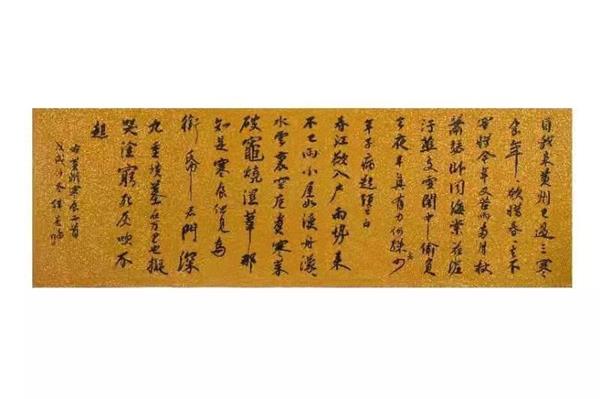 自我來黃州已過三寒
食年〻欲惜春〻去不
容惜今年又苦雨兩月秋
蕭瑟卧聞海棠花泥
汙燕支雪闇中偷負
去夜半真有力何殊少
年子病起頭已白
春江欲入戶雨勢來
不已雨小屋如漁舟濛〻
水雲裏空庖煮寒菜
破竈燒溼葦那
知是寒食但見烏
銜帋君門深
九重墳墓在萬里也擬
哭塗窮死灰吹不
起
右黃州寒食二首
戊戌之冬